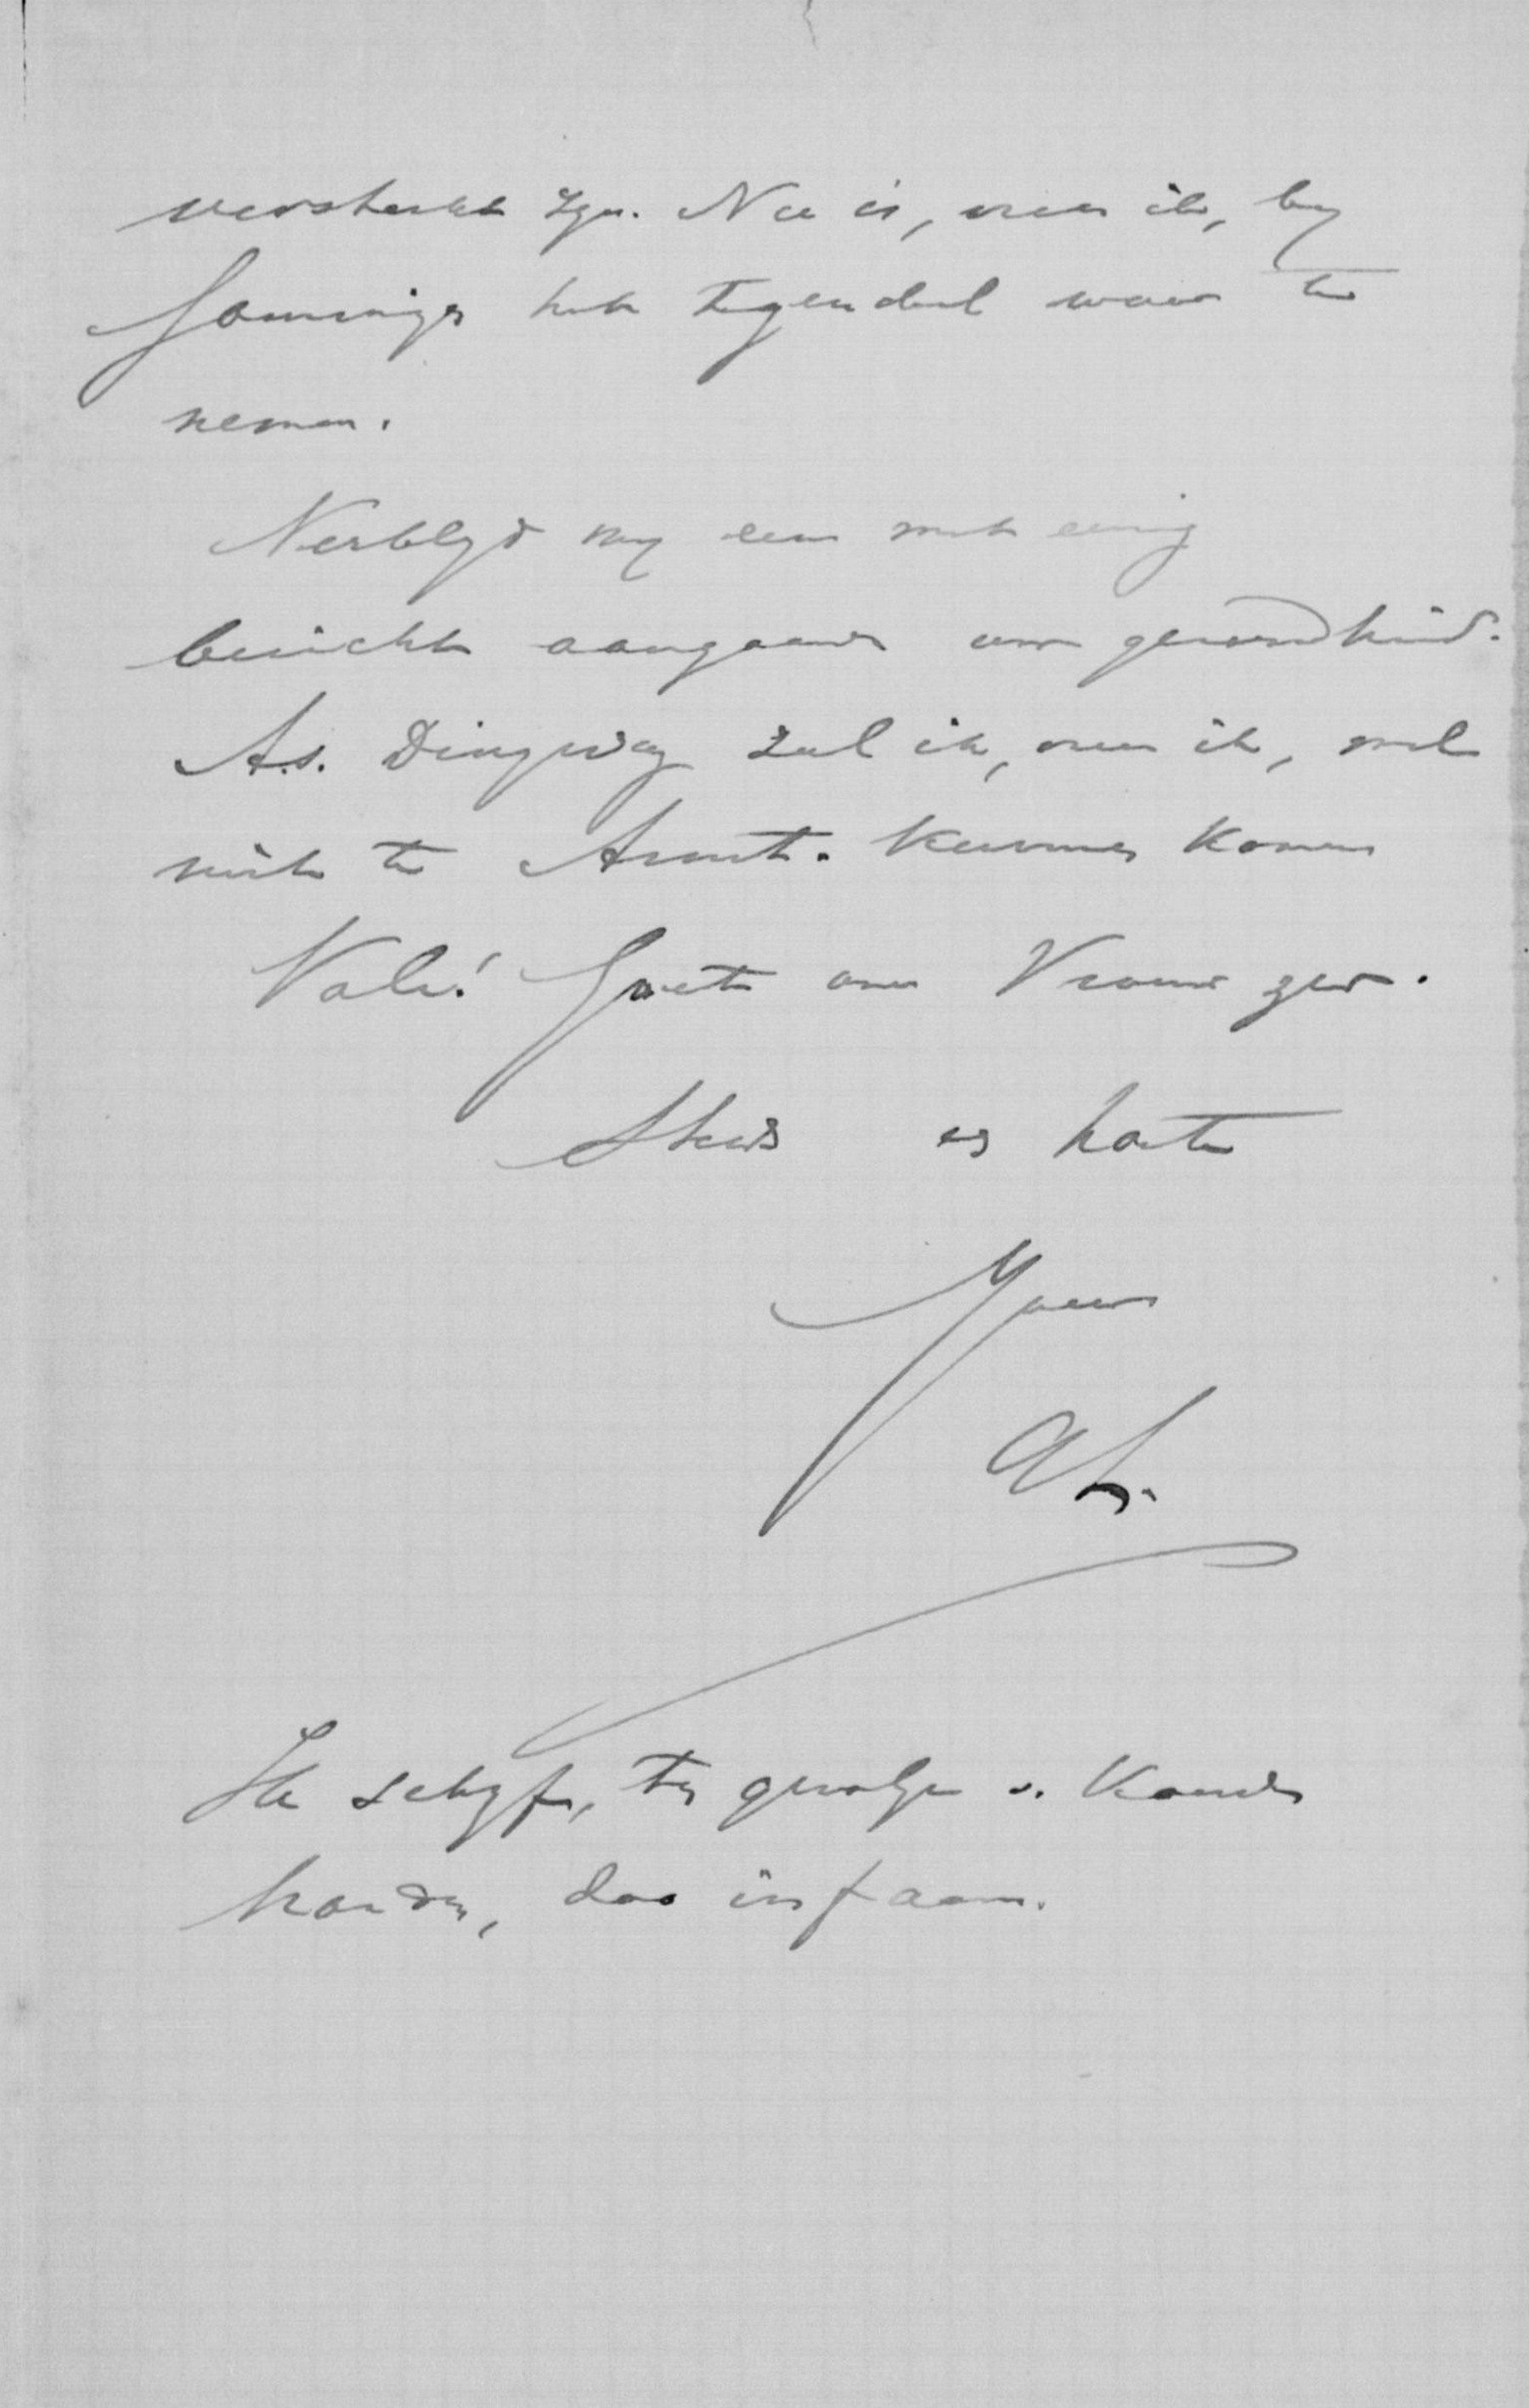 versterkt zyn. Nu is, vrees ik, by
sommigen het tegendeel waar te
nemen.
Verblyd my eens met eenig
bericht aangaande uw gezondheid.
A.s. Dingsdag zal ik, vrees ik, wel
niet te Amst. kunnen komen
Vale! Groet uwe Vrouw zeer.
Steeds es harte
Youw
AL.
Ik schryf, ten gevolge v. koude
handen, dus infaam.